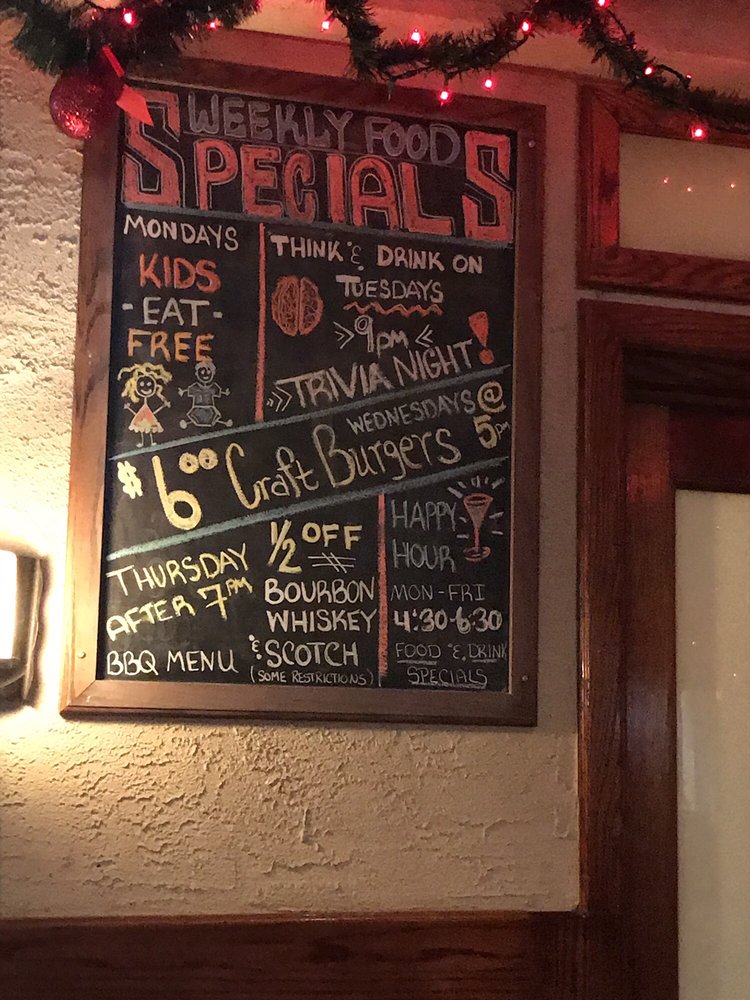 WEEKLY FOOD
SPECIALS
MONDAYS
KIDS
-EAT-
FREE
THINK & DRINK ON
TUESDAYS
>> 9pm <<
>> TRIVIA NIGHT!
WEDNESDAYS @
5pm
$6.00 Craft Burgers
THURSDAY
AFTER 7PM
BBQ MENU
1/2 OFF
BOURBON
WHISKEY
& SCOTCH
(SOME RESTRICTIONS)
HAPPY
HOUR
MON-FRI
4:30-6:30
FOOD & DRINK
SPECIALS